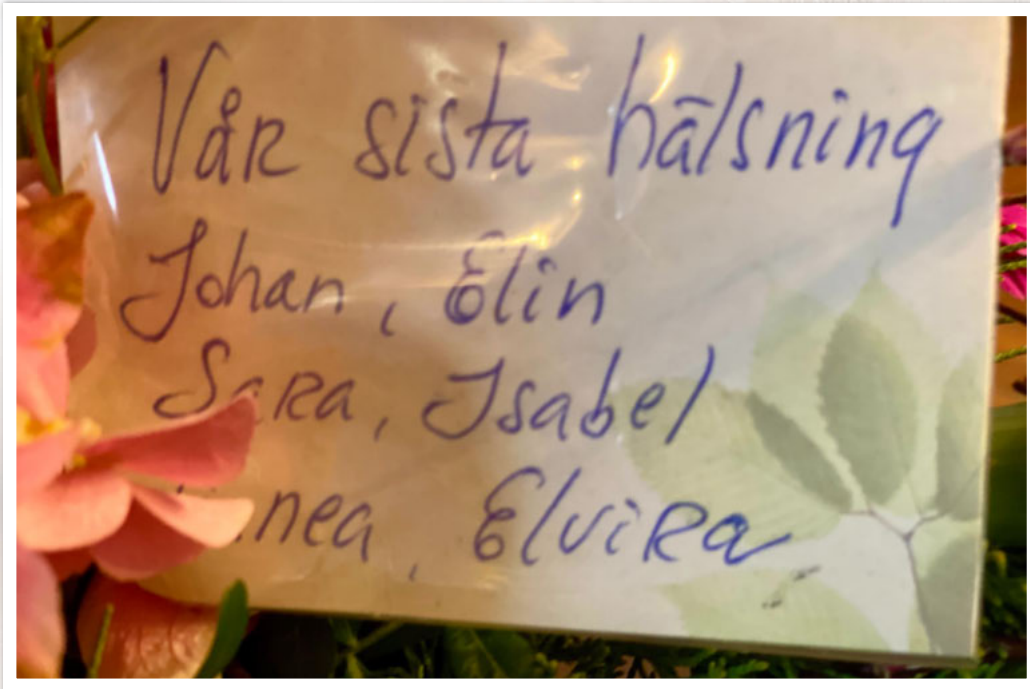 Vår sista hälsning
Johan, Elin
Sara, Isabel
Elvira